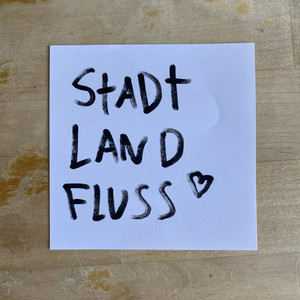 STADT
LAND
FLUSS ♡